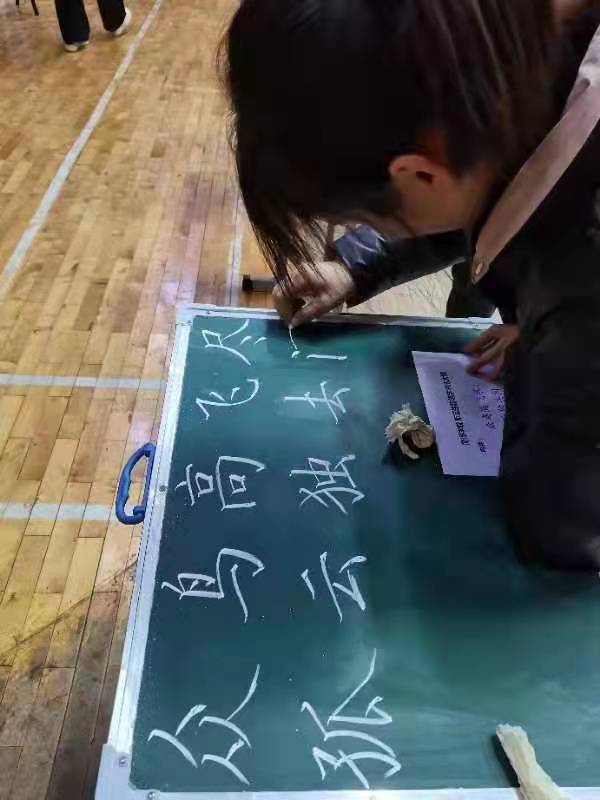 众鸟高飞尽
孤云独去